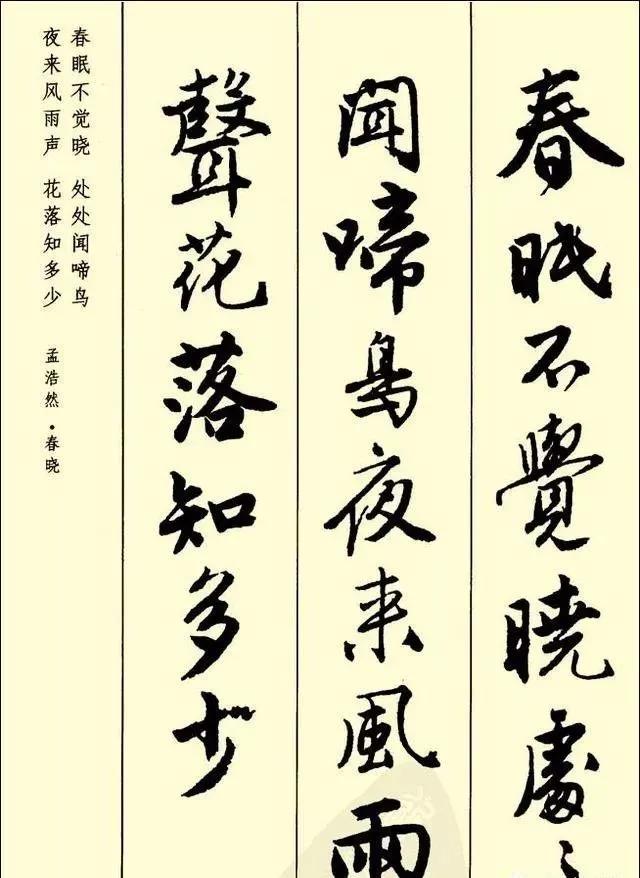 春眠不覺曉處々
聞啼鳥夜来風雨
聲花落知多少
春眠不觉晓 处处闻啼鸟
夜来风雨声 花落知多少
孟浩然·春晓